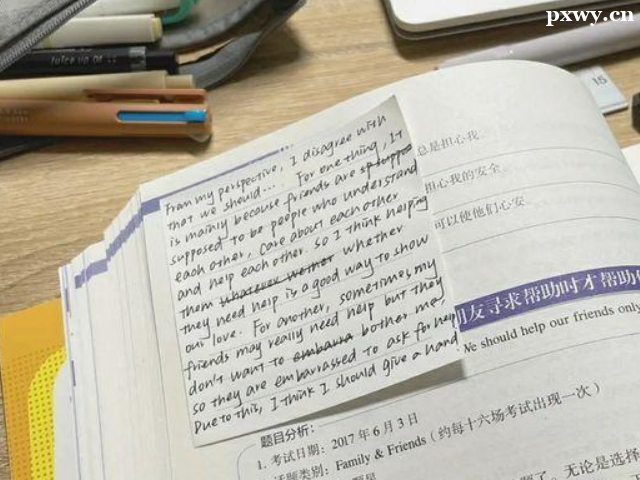 pxwy.cn
juice up 04
15
From my perspective, I disagree with
that we should... For one thing, It
is mainly because friends are
supposed to be people who understand
each other, care about each other
and help each other. So I think helping
them whatever whether
they need help is a good way to show
our love. For another, sometimes my
friends may really need help but they
don't want to embarra bother me,
so they are embarrassed to ask for help
Due to this, I think I should give a hand
总是担心我.
担心我的安全
可以使他们心安.
朋友寻求帮助时才帮助
We should help our friends only
题目分析:
1. 考试日期: 2017 年 6 月 3 日
话题类别: Family & Friends (约每十六场考试出现一次)
题了。无论是选择